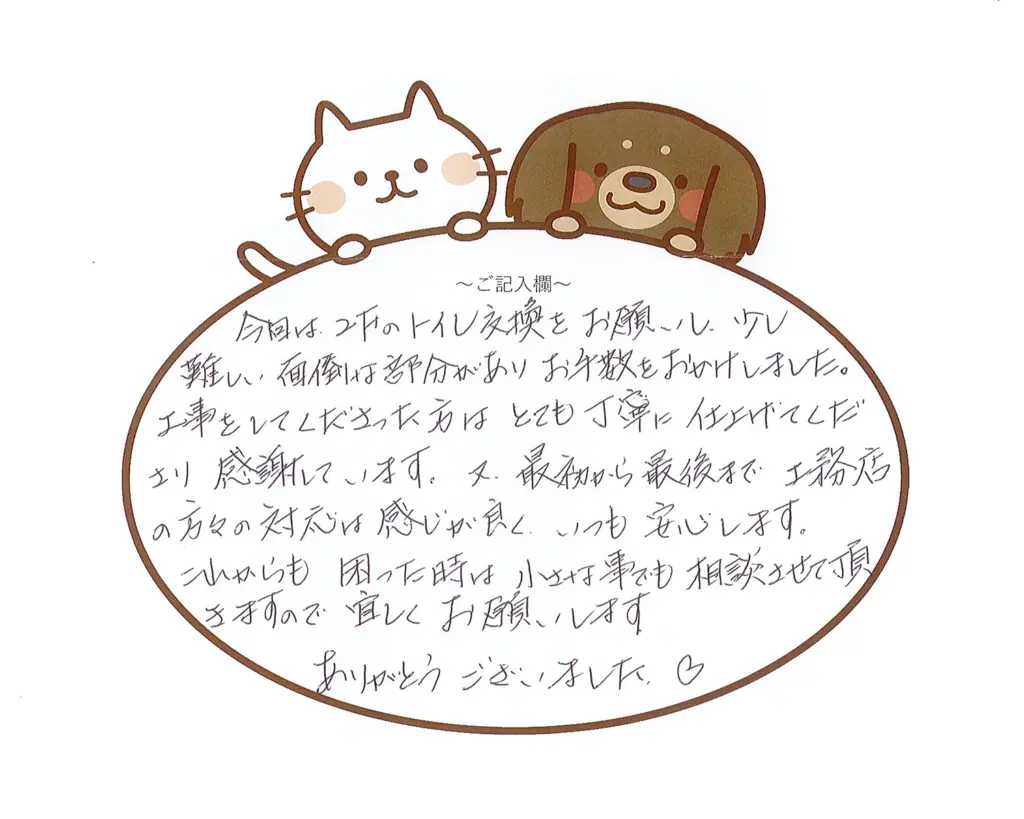 ～ご記入欄～
今回は、2Fのトイレ交換をお願いし、少し
難しい、面倒な部分がありお手数をおかけしました。
工事をしてくださった方はとても丁寧に仕上げてくだ
さり感謝しています。又、最初から最後まで工務店
の方々の対応は感じが良く、いつも安心します。
これからも困った時は小さな事でも相談させて頂
きますので宜しくお願いします
ありがとうございました。♡